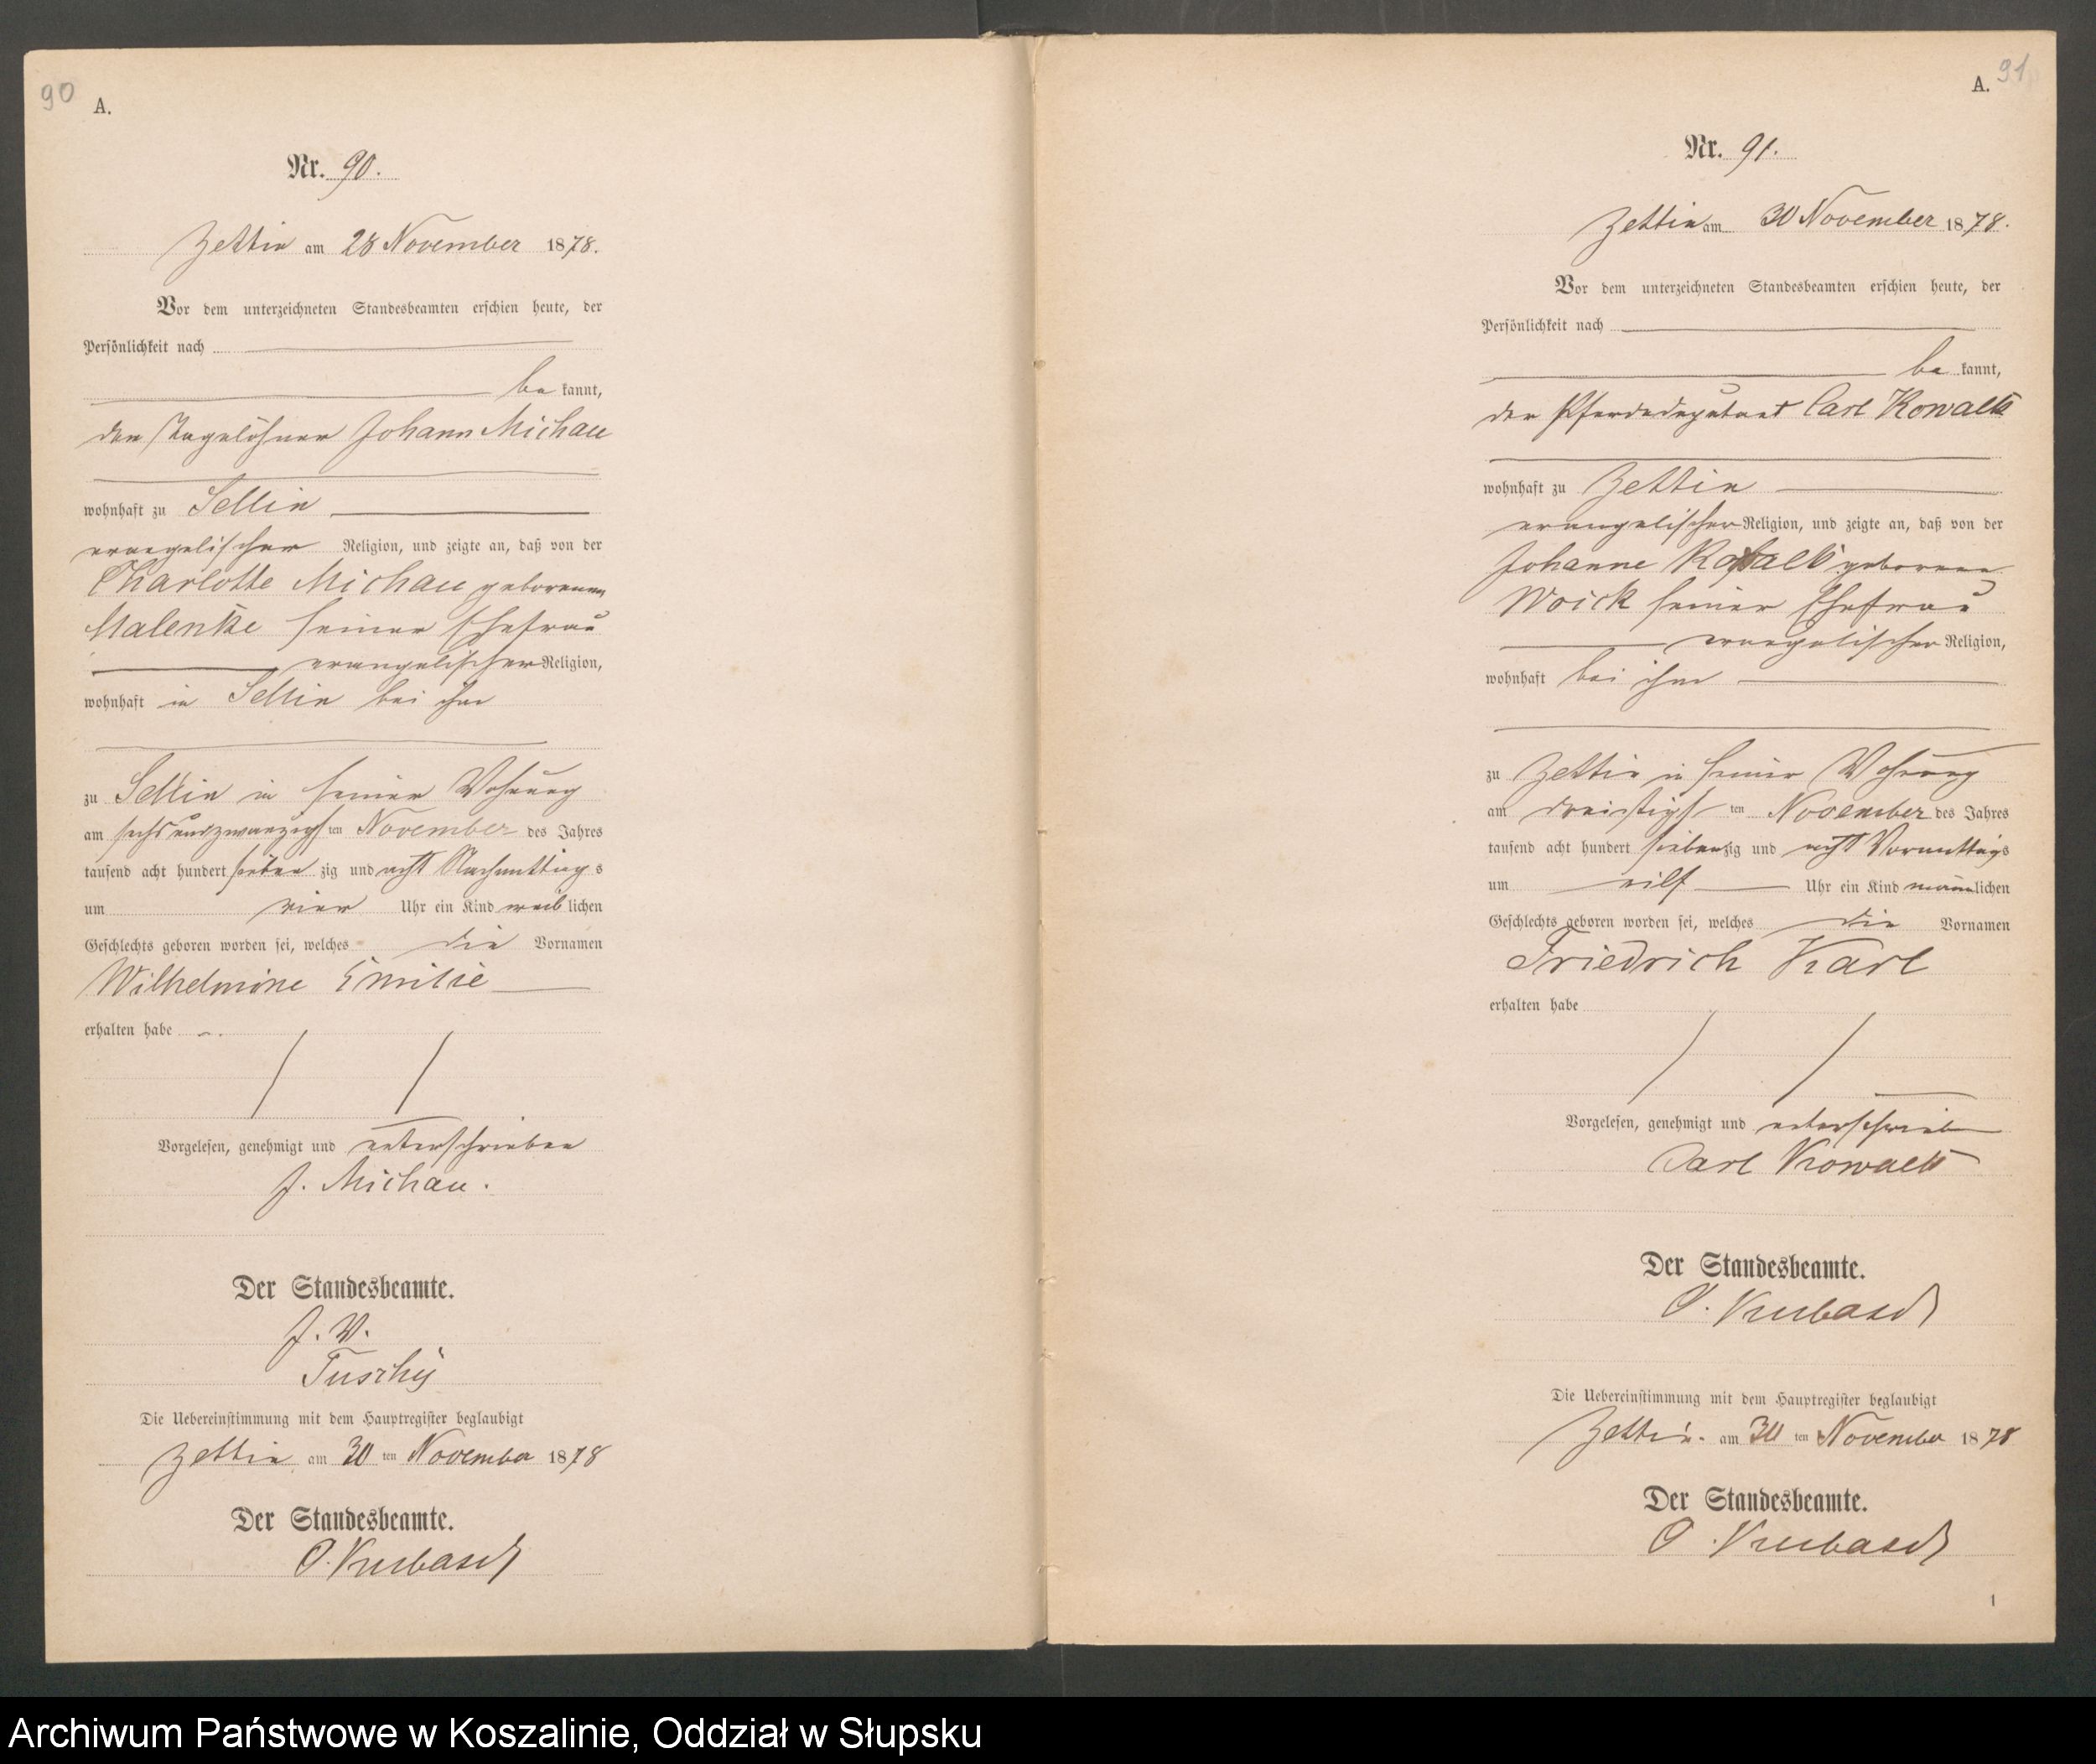 90
A.
Nr. 90.
Zettin am 28 November 1878.
Vor dem unterzeichneten Standesbeamten erschien heute, der
Persönlichkeit nach
be kannt,
der Tagelöhner Johann Michau
wohnhaft zu Sellin
evangelischer Religion, und zeigte an, daß von der
Charlotte Michau geborenen
Malenke seiner Ehefrau
evangelischer Religion,
wohnhaft in Sellin bei ihm
zu Sellin in seiner Wohnung
am sechsundzwanzigsten November des Jahres
tausend acht hundert siebenzig und acht Nachmittags
um vier Uhr ein Kind weiblichen
Geschlechts geboren worden sei, welches die Vornamen
Wilhelmine Emilie
erhalten habe
Vorgelesen, genehmigt und unterschrieben
J. Michau.
Der Standesbeamte.
J. V.
Tuschy
Die Uebereinstimmung mit dem Hauptregister beglaubigt
Zettin am 30 ten November 1878
Der Standesbeamte.
91
A.
Nr. 91.
Zettin am 30 November 1878.
Vor dem unterzeichneten Standesbeamten erschien heute, der
Persönlichkeit nach
be kannt,
der Pferdedeputant Carl Kowalk
wohnhaft zu Zettin
evangelischer Religion, und zeigte an, daß von der
Johanne geborene
Woick seiner Ehefrau
evangelischer Religion,
wohnhaft bei ihm
zu Zettin in seiner Wohnung
am dreißigsten November des Jahres
tausend acht hundert siebenzig und acht Vormittags
um eilf Uhr ein Kind männlichen
Geschlechts geboren worden sei, welches die Vornamen
Friedrich Karl
erhalten habe
Vorgelesen, genehmigt und unterschrieben
Carl Kowalk
Der Standesbeamte.
Die Uebereinstimmung mit dem Hauptregister beglaubigt
Zettin. am 30 ten November 1878
Der Standesbeamte.
1
Archiwum Państwowe w Koszalinie, Oddział w Słupsku